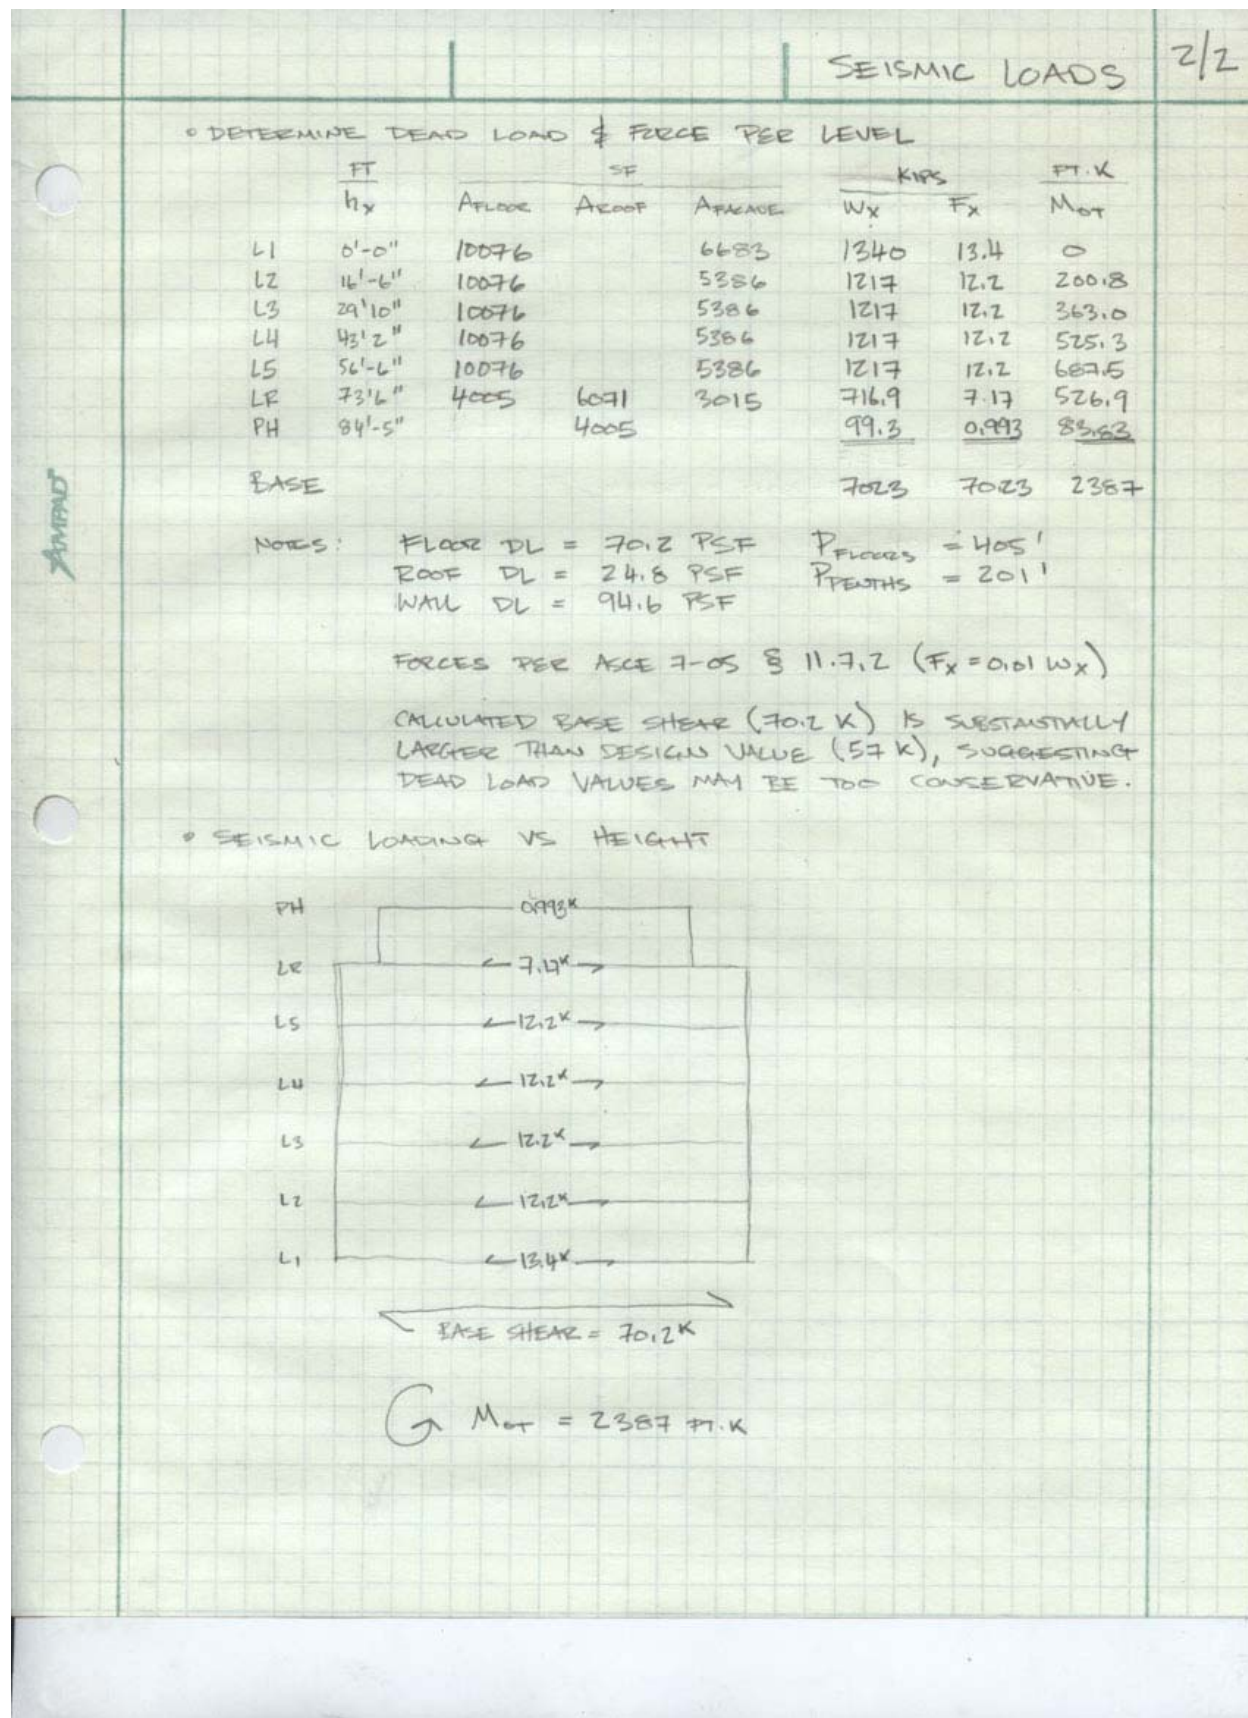 SEISMIC LOADS 2/2
• DETERMINE DEAD LOAD & FORCE PER LEVEL
FT SF KIPS FT.K
hx AFLOOR AROOF AFACADE Wx Fx MOT
L1 0'-0" 10076 6683 1340 13.4 0
L2 16'-6" 10076 5386 1217 12.2 200.8
L3 29'10" 10076 5386 1217 12.2 363.0
L4 43'2" 10076 5386 1217 12.2 525.3
L5 56'-6" 10076 5386 1217 12.2 687.5
LR 73'6" 4005 6071 3015 716.9 7.17 526.9
PH 84'-5" 4005 99.3 0.993 83.83
BASE 7023 70.23 2387
NOTES: FLOOR DL = 70.2 PSF PFLOORS = 405'
ROOF DL = 24.8 PSF PPENTHS = 201'
WALL DL = 94.6 PSF
FORCES PER ASCE 7-05 § 11.7.2 (Fx = 0.01 Wx)
CALCULATED BASE SHEAR (70.2 K) IS SUBSTANTIALLY
LARGER THAN DESIGN VALUE (57 K), SUGGESTING
DEAD LOAD VALUES MAY BE TOO CONSERVATIVE.
• SEISMIC LOADING VS HEIGHT
PH 0.993K
LR 7.17K
L5 12.2K
L4 12.2K
L3 12.2K
L2 12.2K
L1 13.4K
BASE SHEAR = 70.2K
MOT = 2387 FT.K
AMPAD